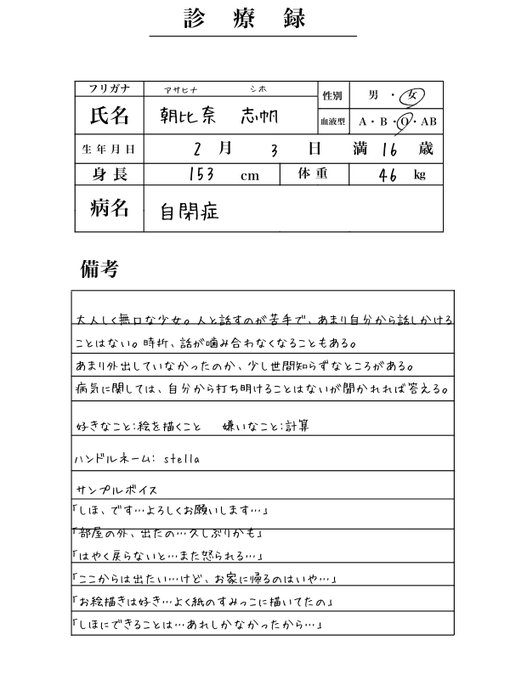 診療録
フリガナ アサヒナ シホ 性別 男・女
氏名 朝比奈 志帆 血液型 A・B・O・AB
生年月日 2月 3日 満16歳
身長 153cm 体重 46kg
病名 自閉症
備考
大人しく無口な少女。人と話すのが苦手で、あまり自分から話しかける
ことはない。時折、話が噛み合わなくなることもある。
あまり外出していなかったのか、少し世間知らずなところがある。
病気に関しては、自分から打ち明けることはないが聞かれれば答える。
好きなこと:絵を描くこと 嫌いなこと:計算
ハンドルネーム: stella
サンプルボイス
「しほ、です…よろしくお願いします…」
「部屋の外、出たの…久しぶりかも」
「はやく戻らないと…また怒られる…」
「ここからは出たい…けど、お家に帰るのはいや…」
「お絵描きは好き…よく紙のすみっこに描いてたの」
「しほにできることは…あれしかなかったから…」